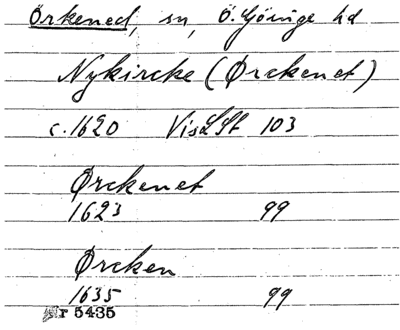 Örkened, sn, Ö. Göinge hd
Nykircke (Ørckenet)
c. 1620 VisLSt 103
Ørckenet
1623 99
Ørcken
1635 99
r 5435